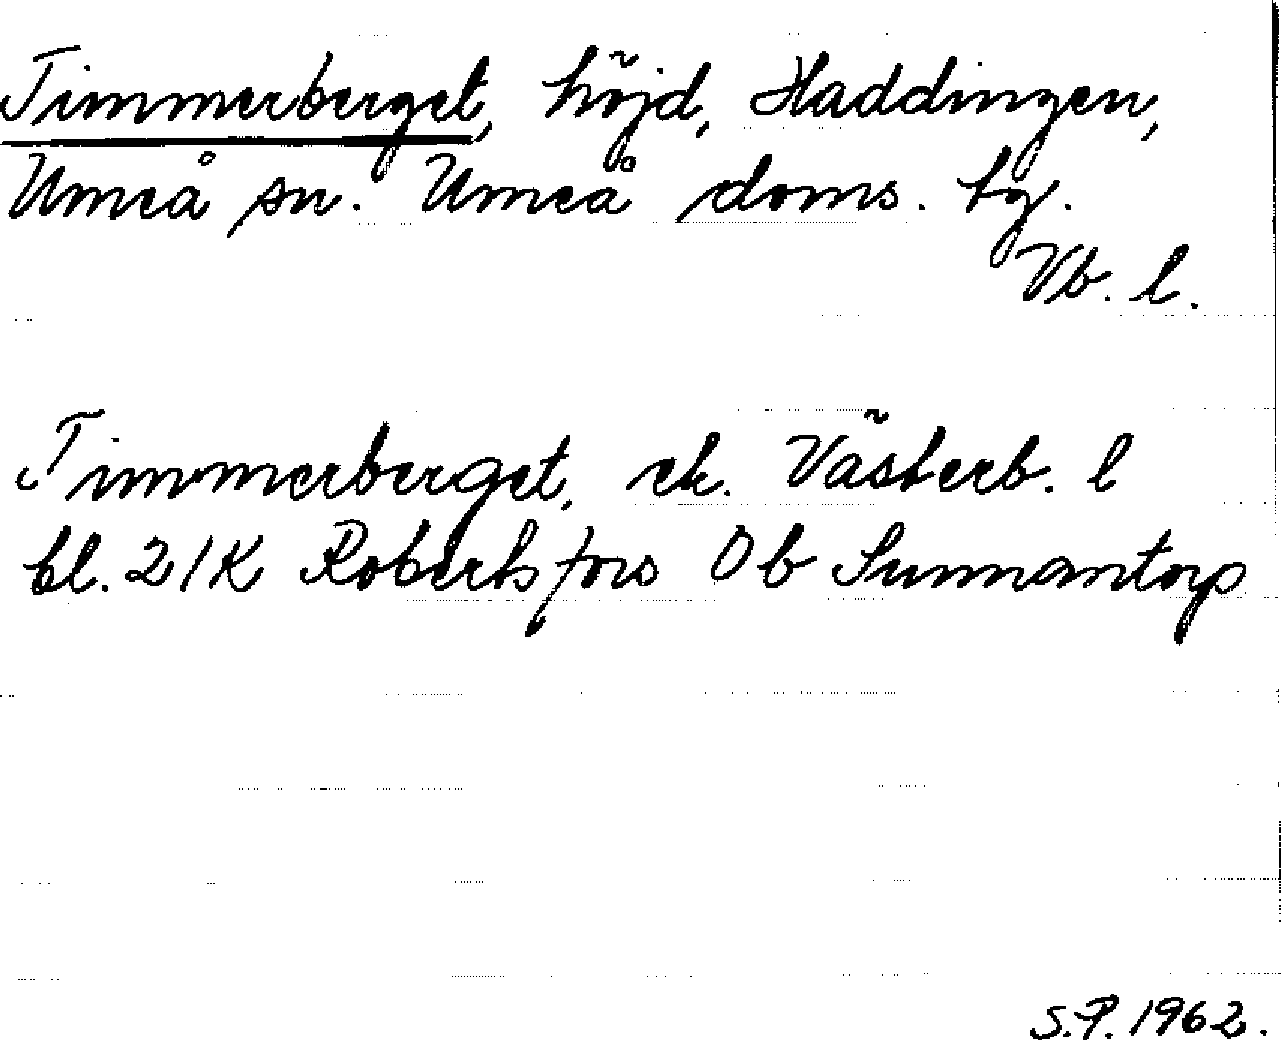 Timmerberget, höjd, Haddingen,
Umeå sn. Umeå doms. tg.
Vb. l.
Timmerberget, ek. Västerb. l
bl. 21K Robertsfors 0b Sunnantorp
S.P. 1962.